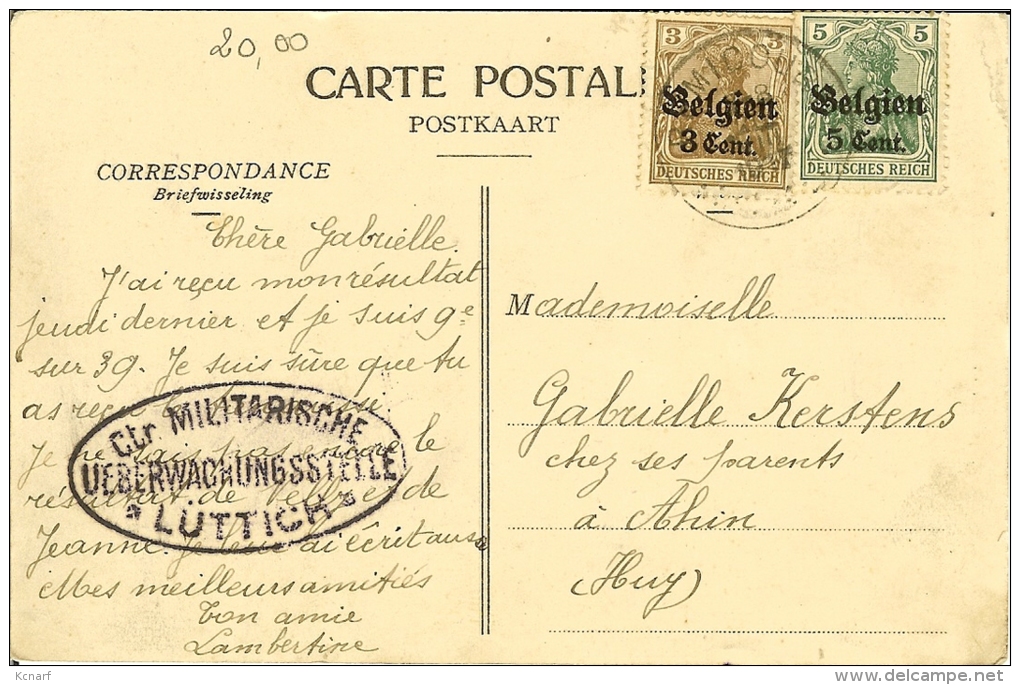 20,00
CARTE POSTAL
POSTKAART
3 3
Belgien
3 Cent.
DEUTSCHES REICH
5 5
Belgien
5 Cent.
DEUTSCHES REICH
CORRESPONDANCE
Briefwisseling
Chère Gabrielle.
J'ai reçu mon résultat
jeudi dernier et je suis 9e
sur 39. Je suis sûre que tu
as reçu
Je ne sais pas encore le
résultat de et de
Jeanne. Je leur ai écrit aussi
Mes meilleurs amitiés
Ton amie
Lambertine
Ctr MILITARISCHE
UEBERWACHUNGSSTELLE
LÜTTICH
Mademoiselle
Gabrielle Kerstens
chez ses parents
à Ahin
(Huy)
Kcnarf
delcampe.net